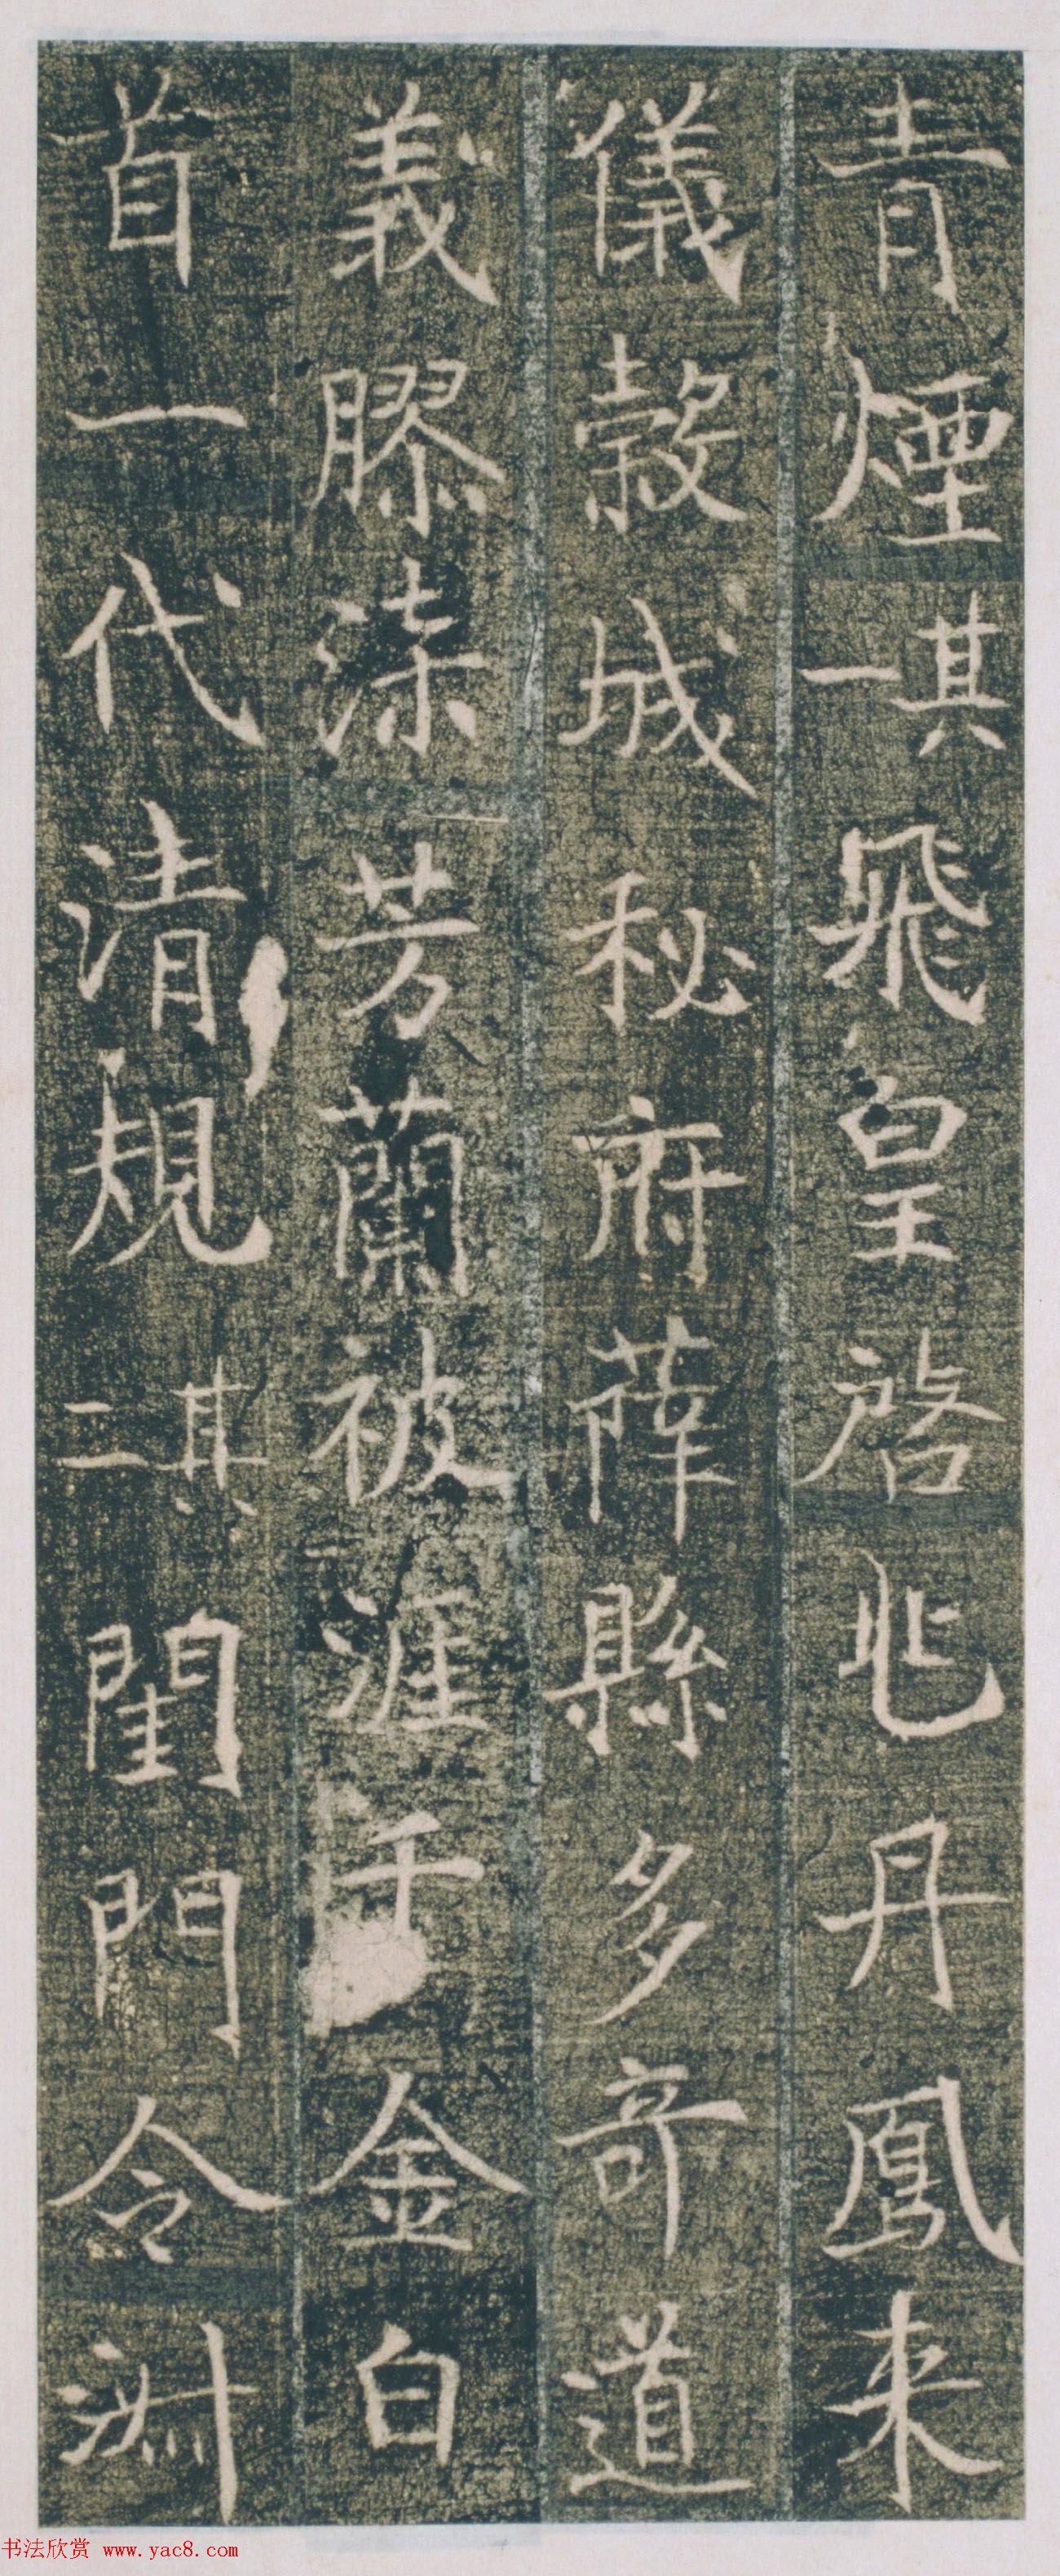 青煙其一飛皇启兆丹鳳来
儀穀城秘府薛縣多奇道
義膠漆芳蘭被涯千金白
首一代清規其二閨門令淑
书法欣赏 www.yac8.com